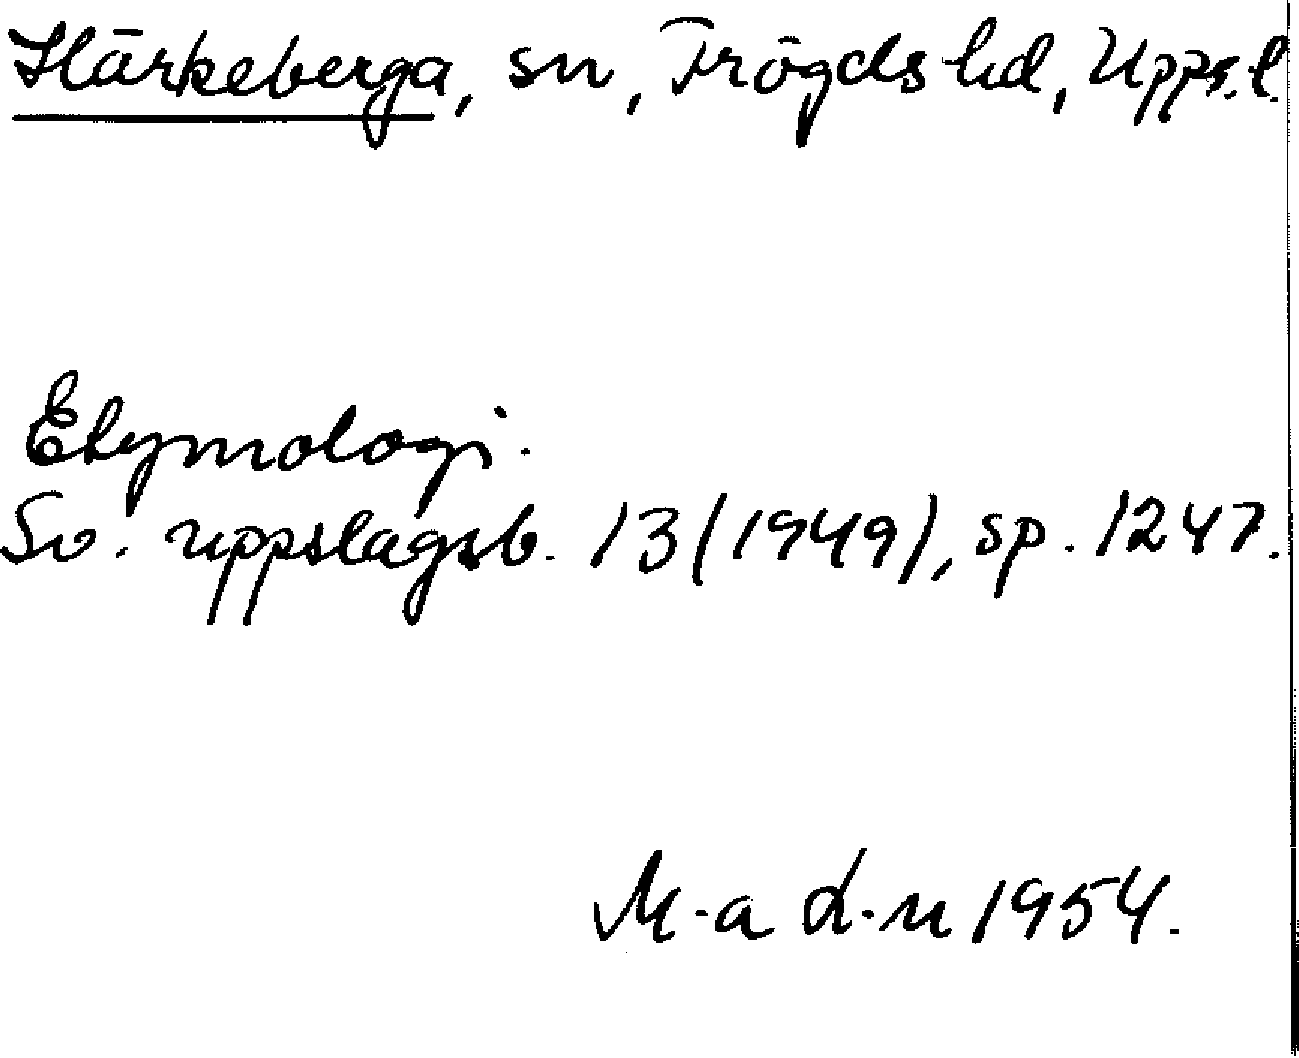 Härkeberga, sn, Trögds hd, Upps. l.
Etymologi.
Sv. uppslagsb. 13 (1949), sp. 1247.
M-a L-n 1954.